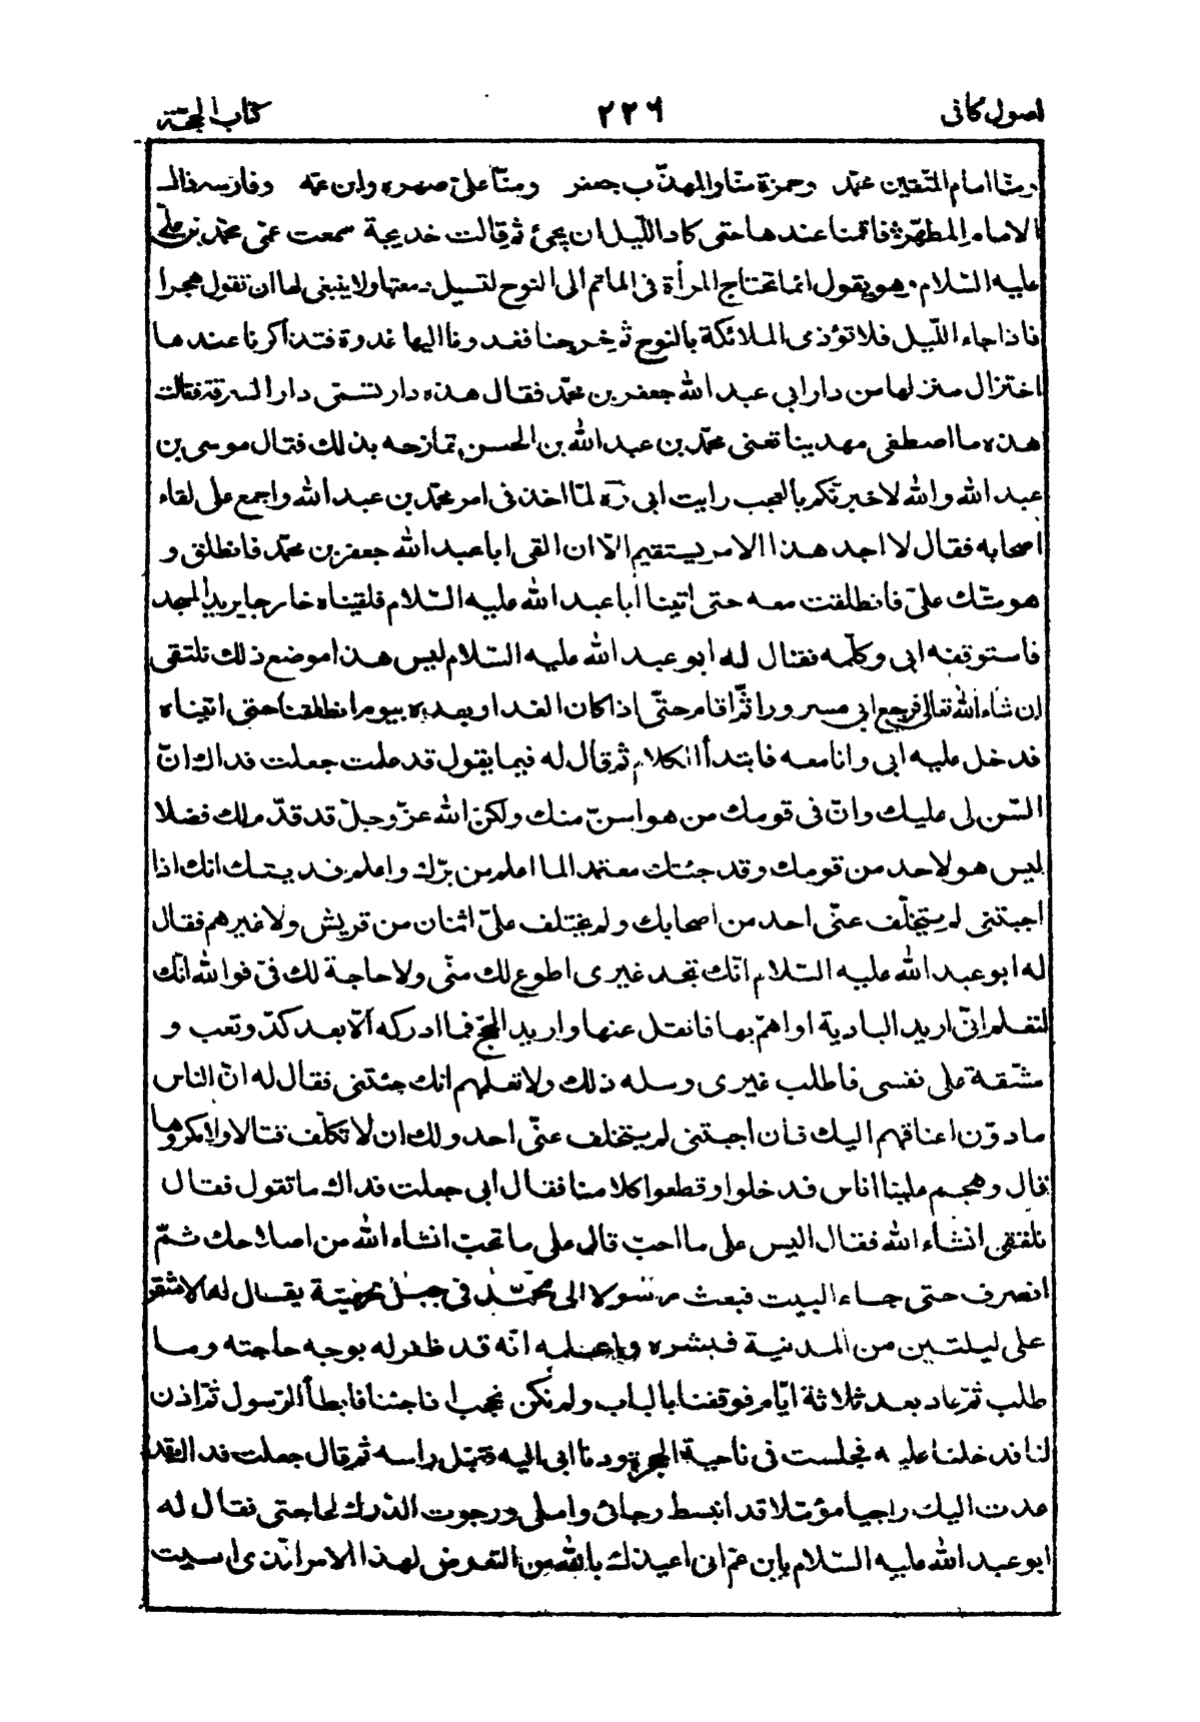 اصول کافی ۲۲۶ کتاب الحجّة
ومنّا امام المتّقین محمّد وحمزة منّا والمهذّب جعفر ومنّا علیّ صهره وابن عمّه وفارسه ذاك
الامام المطهّر فاقمنا عندها حتی کاد اللّیل ان یجیئ ثم قالت خدیجة سمعت عمّی محمّد بن علیّ
علیه السّلام وهو یقول انما تحتاج المرأة فی الماتم الی النوح لتسیل دمعتها ولا ینبغی لها ان تقول هجرا
فاذا جاء اللّیل فلا تؤذی الملائکة بالنوح ثم خرجنا فغدونا الیها غدوة فتذاکرنا عندها
اختزال منزلها من دار ابی عبد الله جعفر بن محمّد فقال هذه دار تسمّی دار السرقة فقالت
هذه ما اصطفی مهدینا تعنی محمّد بن عبد الله بن الحسن تمازحه بذلك فقال موسی بن
عبد الله والله لاخبرنّکم بالعجب رایت ابی ره لمّا اخذ فی امر محمّد بن عبد الله واجمع علی لقاء
اصحابه فقال لا اجد هذا الامر یستقیم الّا ان القی ابا عبد الله جعفر بن محمّد فانطلق و
هو متّك علیّ فانطلقت معه حتی اتینا ابا عبد الله علیه السّلام فلقیناه خارجا یرید المسجد
فاستوقفه ابی وکلّمه فقال له ابو عبد الله علیه السّلام لیس هذا موضع ذلك نلتقی
ان شاء الله تعالی فرجع ابی مسرورا ثمّ اقام حتّی اذا کان الغد او بعده بیوم انطلقنا حتی اتیناه
فدخل علیه ابی وانا معه فابتدأ الکلام ثم قال له فیما یقول قد علمت جعلت فداك انّ
السّن لی علیك وانّ فی قومك من هو اسنّ منك ولکنّ الله عزّ وجلّ قد قدّم لك فضلا
لیس هو لاحد من قومك وقد جئتك معتمدا لما اعلم من برّك واعلم فدیتك انك اذا
اجبتنی لم یتخلّف عنّی احد من اصحابك ولم یختلف علیّ اثنان من قریش ولا غیرهم فقال
له ابو عبد الله علیه السّلام انّك تجد غیری اطوع لك منّی ولا حاجة لك فیّ فوالله انّك
لتعلم انّی ارید البادیة او اهمّ بها فاثقل عنها وارید الحجّ فما ادرکه الّا بعد کدّ وتعب و
مشّقة علی نفسی فاطلب غیری وسله ذلك ولا تعلمهم انك جئتنی فقال له انّ الناس
مادّون اعناقهم الیك فان اجبتنی لم یتخلف عنّی احد ولك ان لا تکلّف قتالا ولا مکروها
قال وهجم علینا اناس فدخلوا وقطعوا کلامنا فقال ابی جعلت فداك ما تقول فقال
نلتقی انشاء الله فقال الیس علی ما احبّ قال علی ما تحبّ انشاء الله من اصلاحك ثمّ
انصرف حتی جاء البیت فبعث رسولا الی محمّد فی جبل بجهینة یقال له الاشقر
علی لیلتین من المدینة فبشره واعلمه انّه قد ظفر له بوجه حاجته وما
طلب ثم عاد بعد ثلاثة ایّام فوقفنا بالباب ولم نکن نحجب اذا جئنا فابطأ الرّسول ثمّ اذن
لنا فدخلنا علیه فجلست فی ناحیة الحجرة ودنا ابی الیه فقبّل راسه ثم قال جعلت فداك قد
عدت الیك راجیا مؤمّلا قد انبسط رجائی واملی ورجوت الدّرك لحاجتی فقال له
ابو عبد الله علیه السّلام یابن عم انی اعیذك بالله من التعرض لهذا الامر الّذی امسیت